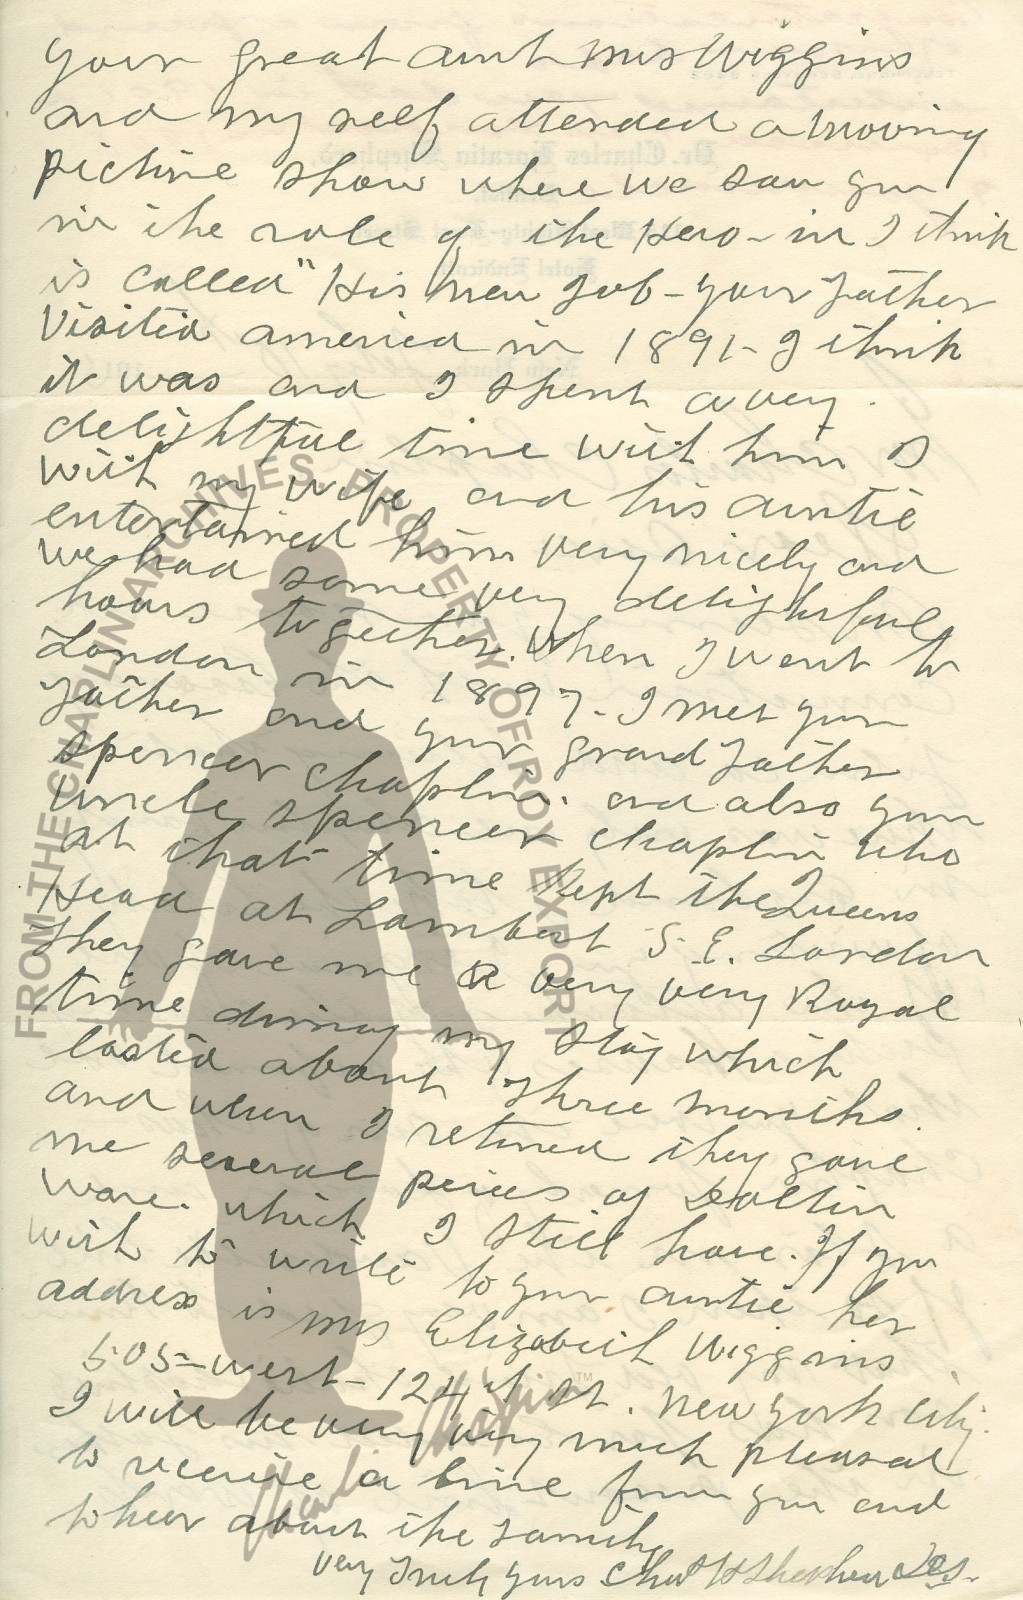 your great aunt Mrs Wiggins
and my self attended a moving
picture show where we saw you
in the role of the Hero - in I think
is called "His New Job - your father
Visited america in 1891 - I think
it was and I spent a very
delightful time with him I
with my wife and his auntie
entertained him very nicely and
we had some very delightful
hours together. When I went to
London in 1897 - I met your
father and your grand father
spencer chaplin. and also your
uncle spencer chaplin who
at that time kept the Queens
Head at Lambert S.E. London
They gave me a very very Royal
time during my stay which
lasted about three months.
and when I returned they gave
me several peices of Doltin
ware. which I still have. If you
wish to write to your auntie her
address is Mrs Elizabeth Wiggins
505 - west - 124th St. New York City.
I will be very very much pleased
to receive a line from you and
to hear about the family
very Truly yours Chas H Shepherd
FROM THE CHAPLIN ARCHIVES. PROPERTY OF ROY EXPORT
Charlie Chaplin™
Dr. Charles Horatio Shepherd,